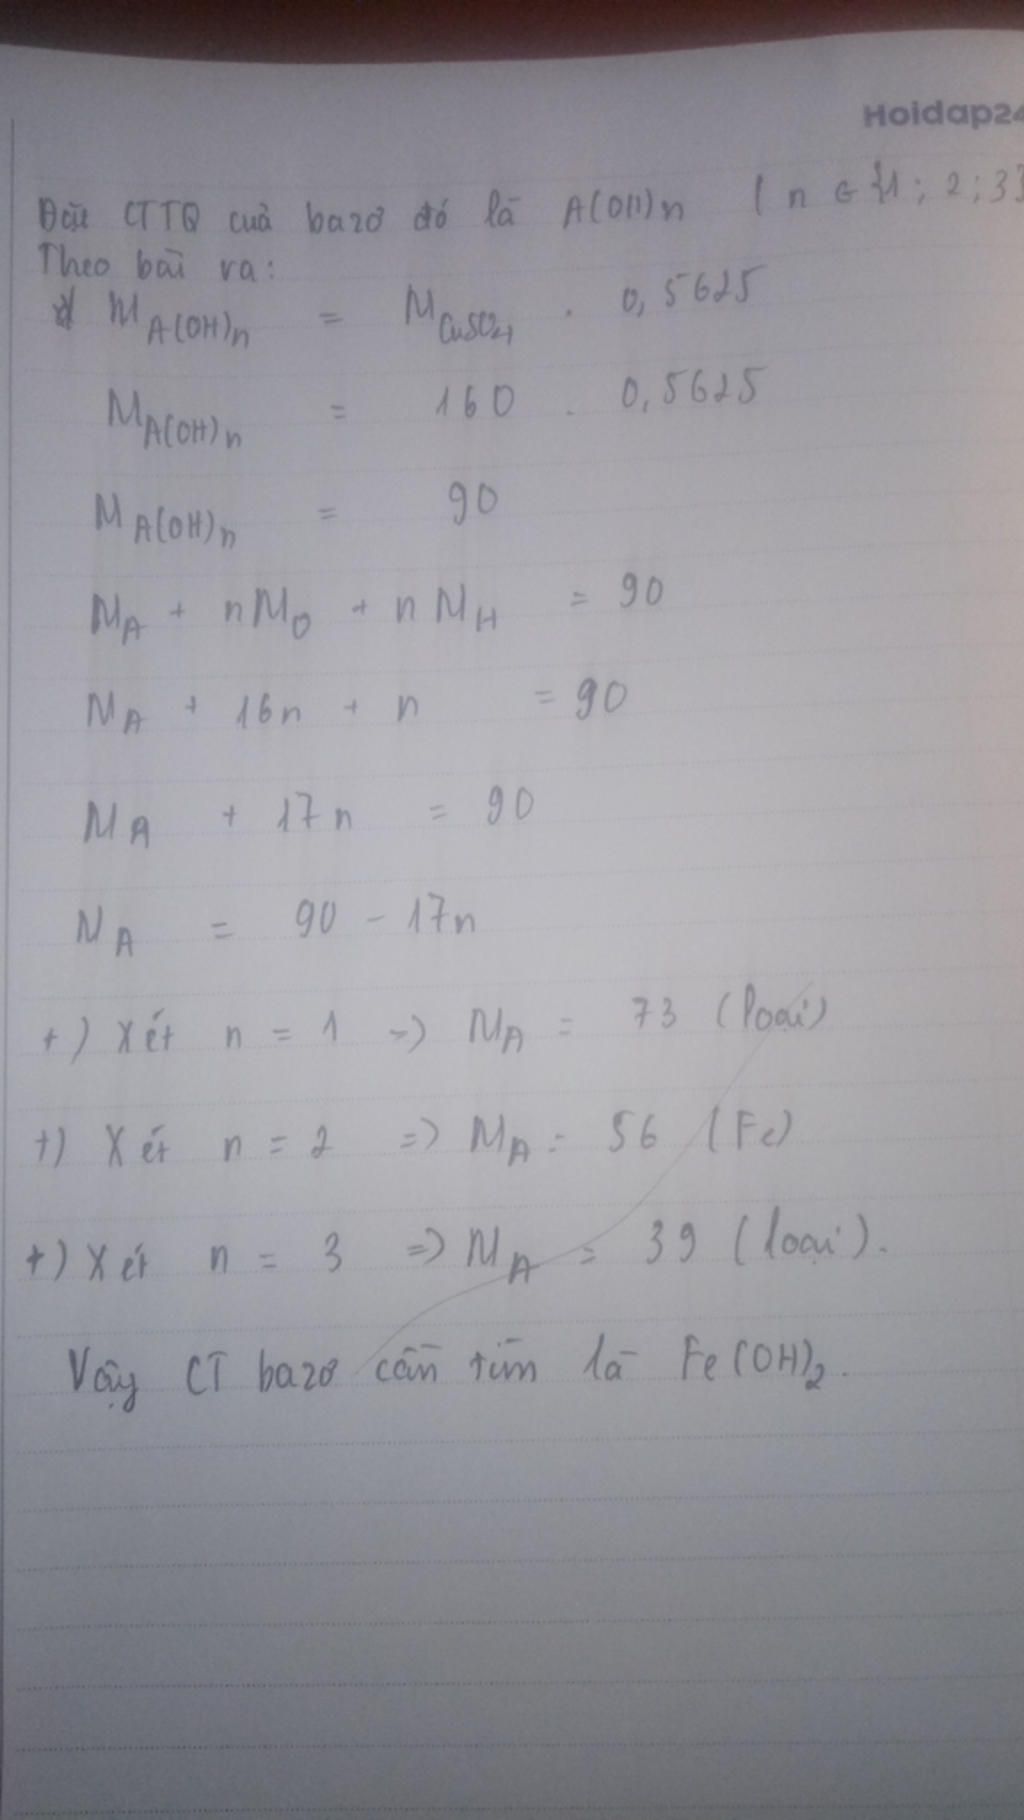 Hoidap24
Đặt CTTQ của bazơ đó là A(OH)n ( n ∈ {1; 2; 3}
Theo bài ra:
M A(OH)n = M CuSO4 . 0,5625
M A(OH)n = 160 . 0,5625
M A(OH)n = 90
M A + nM O + n M H = 90
M A + 16n + n = 90
M A + 17n = 90
M A = 90 - 17n
+) Xét n = 1 => M A = 73 (loại)
+) Xét n = 2 => M A = 56 (Fe)
+) Xét n = 3 => M A = 39 (loại).
Vậy CT bazơ cần tìm là Fe(OH)2.